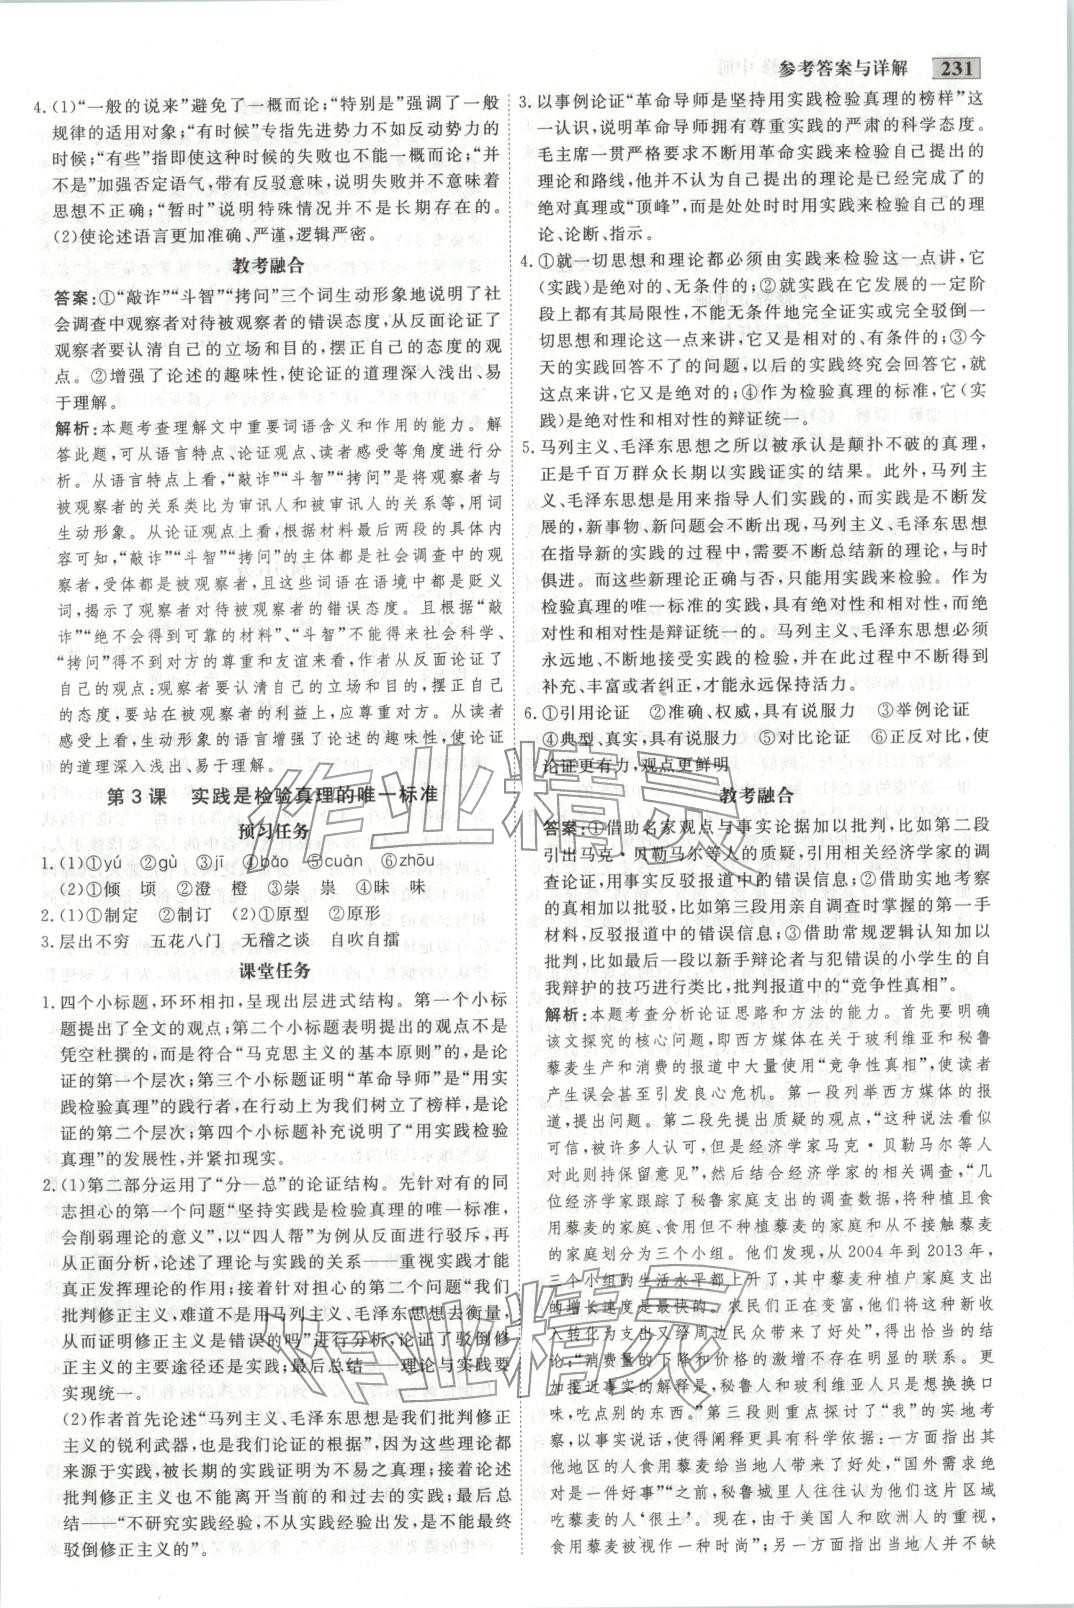 参考答案与详解 231
4.(1)“一般的说来”避免了一概而论;“特别是”强调了一般
规律的适用对象;“有时候”专指先进势力不如反动势力的
时候;“有些”指即使这种时候的失败也不能一概而论;“并
不是”加强否定语气,带有反驳意味,说明失败并不意味着
思想不正确;“暂时”说明特殊情况并不是长期存在的。
(2)使论述语言更加准确、严谨,逻辑严密。
教考融合
答案:①“敲诈”“斗智”“拷问”三个词生动形象地说明了社
会调查中观察者对待被观察者的错误态度,从反面论证了
观察者要认清自己的立场和目的,摆正自己的态度的观
点。②增强了论述的趣味性,使论证的道理深入浅出、易
于理解。
解析:本题考查理解文中重要词语含义和作用的能力。解
答此题,可从语言特点、论证观点、读者感受等角度进行分
析。从语言特点上看,“敲诈”“斗智”“拷问”是将观察者与
被观察者的关系类比为审讯人和被审讯人的关系等,用词
生动形象。从论证观点上看,根据材料最后两段的具体内
容可知,“敲诈”“斗智”“拷问”的主体都是社会调查中的观
察者,受体都是被观察者,且这些词语在语境中都是贬义
词,揭示了观察者对待被观察者的错误态度。且根据“敲
诈”“绝不会得到可靠的材料”、“斗智”不能得来社会科学、
“拷问”得不到对方的尊重和友谊来看,作者从反面论证了
自己的观点:观察者要认清自己的立场和目的,摆正自己
的态度,要站在被观察者的利益上,应尊重对方。从读者
感受上看,生动形象的语言增强了论述的趣味性,使论证
的道理深入浅出、易于理解。
第3课 实践是检验真理的唯一标准
预习任务
1.(1)①yú ②gù ③jī ④bǎo ⑤cuàn ⑥zhōu
(2)①倾 顷 ②澄 橙 ③崇 祟 ④昧 味
2.(1)①制定 ②制订 (2)①原型 ②原形
3.层出不穷 五花八门 无稽之谈 自吹自擂
课堂任务
1.四个小标题,环环相扣,呈现出层进式结构。第一个小标
题提出了全文的观点;第二个小标题表明提出的观点不是
凭空杜撰的,而是符合“马克思主义的基本原则”的,是论
证的第一个层次;第三个小标题证明“革命导师”是“用实
践检验真理”的践行者,在行动上为我们树立了榜样,是论
证的第二个层次;第四个小标题补充说明了“用实践检验
真理”的发展性,并紧扣现实。
2.(1)第二部分运用了“分—总”的论证结构。先针对有的同
志担心的第一个问题“坚持实践是检验真理的唯一标准,
会削弱理论的意义”,以“四人帮”为例从反面进行驳斥,再
从正面分析,论述了理论与实践的关系——重视实践才能
真正发挥理论的作用;接着针对担心的第二个问题“我们
批判修正主义,难道不是用马列主义、毛泽东思想去衡量,
从而证明修正主义是错误的吗”进行分析,论证了驳倒修
正主义的主要途径还是实践;最后总结——理论与实践要
实现统一。
(2)作者首先论述“马列主义、毛泽东思想是我们批判修正
主义的锐利武器,也是我们论证的根据”,因为这些理论都
来源于实践,被长期的实践证明为不易之真理;接着论述
批判修正主义也不能离开当前的和过去的实践;最后总
结——“不研究实践经验,不从实践经验出发,是不能最终
驳倒修正主义的”。
3.以事例论证“革命导师是坚持用实践检验真理的榜样”这
一认识,说明革命导师拥有尊重实践的严肃的科学态度。
毛主席一贯严格要求不断用革命实践来检验自己提出的
理论和路线,他并不认为自己提出的理论是已经完成了的
绝对真理或“顶峰”,而是处处时时用实践来检验自己的理
论、论断、指示。
4.①就一切思想和理论都必须由实践来检验这一点讲,它
(实践)是绝对的、无条件的;②就实践在它发展的一定阶
段上都有其局限性,不能无条件地完全证实或完全驳倒一
切思想和理论这一点来讲,它又是相对的、有条件的;③今
天的实践回答不了的问题,以后的实践终究会回答它,就
这点来讲,它又是绝对的;④作为检验真理的标准,它(实
践)是绝对性和相对性的辩证统一。
5.马列主义、毛泽东思想之所以被承认是颠扑不破的真理,
正是千百万群众长期以实践证实的结果。此外,马列主
义、毛泽东思想是用来指导人们实践的,而实践是不断发
展的,新事物、新问题会不断出现,马列主义、毛泽东思想
在指导新的实践的过程中,需要不断总结新的理论,与时
俱进。而这些新理论正确与否,只能用实践来检验。作为
检验真理的唯一标准的实践,具有绝对性和相对性,而绝
对性和相对性是辩证统一的。马列主义、毛泽东思想必须
永远地、不断地接受实践的检验,并在此过程中不断得到
补充、丰富或者纠正,才能永远保持活力。
6.①引用论证 ②准确、权威,具有说服力 ③举例论证
④典型、真实,具有说服力 ⑤对比论证 ⑥正反对比,使
论证更有力,观点更鲜明
教考融合
答案:①借助名家观点与事实论据加以批判,比如第二段
引出马克·贝勒马尔等人的质疑,引用相关经济学家的调
查论证,用事实反驳报道中的错误信息;②借助实地考察
的真相加以批驳,比如第三段用亲自调查时掌握的第一手
材料,反驳报道中的错误信息;③借助常规逻辑认知加以
批判,比如最后一段以新手辩论者与犯错误的小学生的自
我辩护的技巧进行类比,批判报道中的“竞争性真相”。
解析:本题考查分析论证思路和方法的能力。首先要明确
该文探究的核心问题,即西方媒体在关于玻利维亚和秘鲁
藜麦生产和消费的报道中大量使用“竞争性真相”,使读者
产生误会甚至引发良心危机。第一段列举西方媒体的报
道,提出问题。第二段先提出质疑的观点,“这种说法看似
可信,被许多人认可,但是经济学家马克·贝勒马尔等人对
此则持保留意见”,然后结合经济学家的相关调查,“几
位经济学家跟踪了秘鲁家庭支出的调查数据,将种植且食
用藜麦的家庭、食用但不种植藜麦的家庭和从不接触藜麦
的家庭划分为三个小组。他们发现,从2004年到2013年,
三个小组的生活水平都上升了,其中藜麦种植户家庭支出
的增长速度是最快的。农民们正在变富,他们将这种新收
入转化为支出又给周边民众带来了好处”,得出恰当的结
论:“消费量的下降和价格的激增不存在明显的联系。更
加接近事实的解释是,秘鲁人和玻利维亚人只是想换换口
味,吃点别的东西。”第三段则重点探讨了“我”的实地考
察,以事实说话,使得阐释更具有科学依据:一方面指出其
他地区的人食用藜麦给当地人带来了好处,“国外需求绝
对是一件好事”“之前,秘鲁城里人往往认为住在这片区域
吃藜麦的人‘很土’。现在,由于美国人和欧洲人的重视,
食用藜麦被视作一种时尚”;另一方面指出当地人并不缺
作业精灵
作业精灵